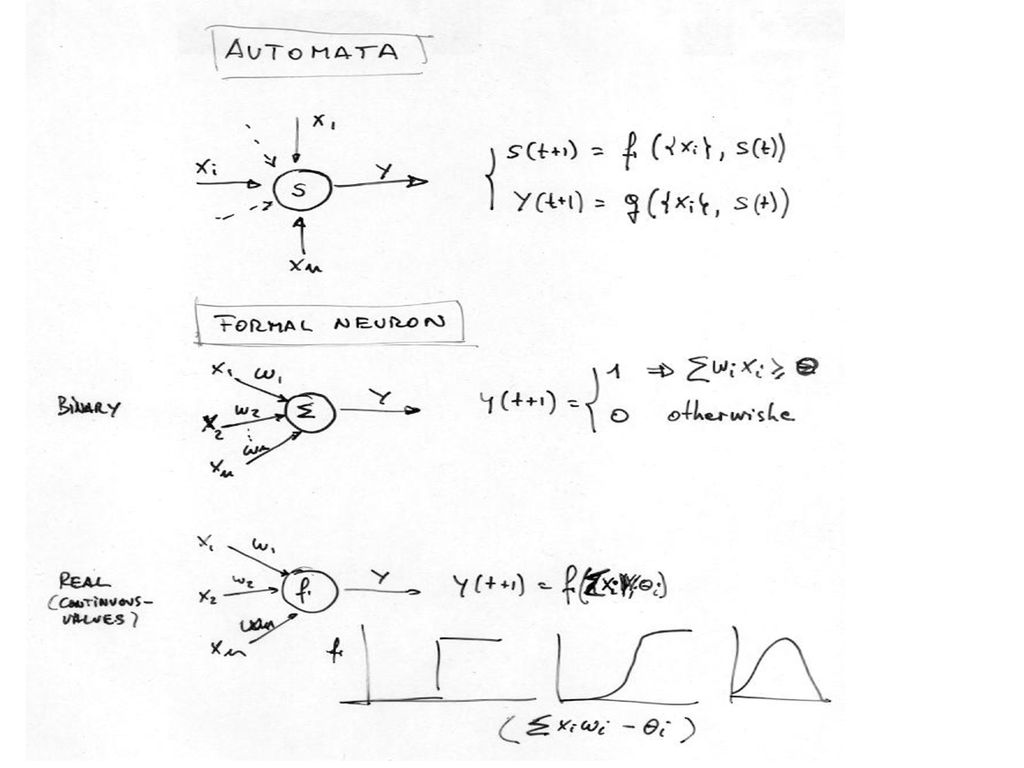 AUTOMATA
x1
xi
S
Y
xn
S(t+1) = f({xi}, S(t))
Y(t+1) = g({xi}, S(t))
FORMAL NEURON
BINARY
x1 w1
x2 w2
xn wn
Σ
Y
y(t+1) = { 1 ⇒ Σwixi ≥ θ
0 otherwishe
REAL
(CONTINUOUS-
VALUES)
x1 w1
x2 w2
xn wn
f
Y
y(t+1) = f(
f
(Σ xiwi - θi)